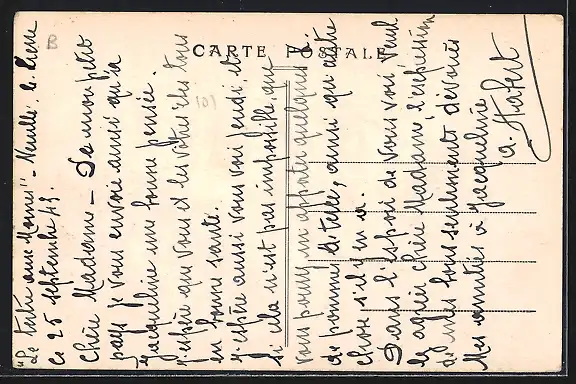 CARTE POSTALE
"Le Tertre aux Moines" - Neuillé. le Lierre
Ce 25 septembre 43.
Chère Madame - De mon petit
pays je vous envoie ainsi qu'à
Jacqueline une bonne pensée.
J'espère que vous et les vôtres êtes tous
en bonne santé.
J'espère aussi vous voir jeudi, et
si cela n'est pas impossible, que
vous pourrez m'apporter quelques K.
de pommes de terre, ainsi que autre
chose s'il y en a.
Dans l'espoir de vous voir, veuil
lez agréer chère Madame, l'expression
de mes bons sentiments dévoués
Mes amitiés à Jacqueline
B
101